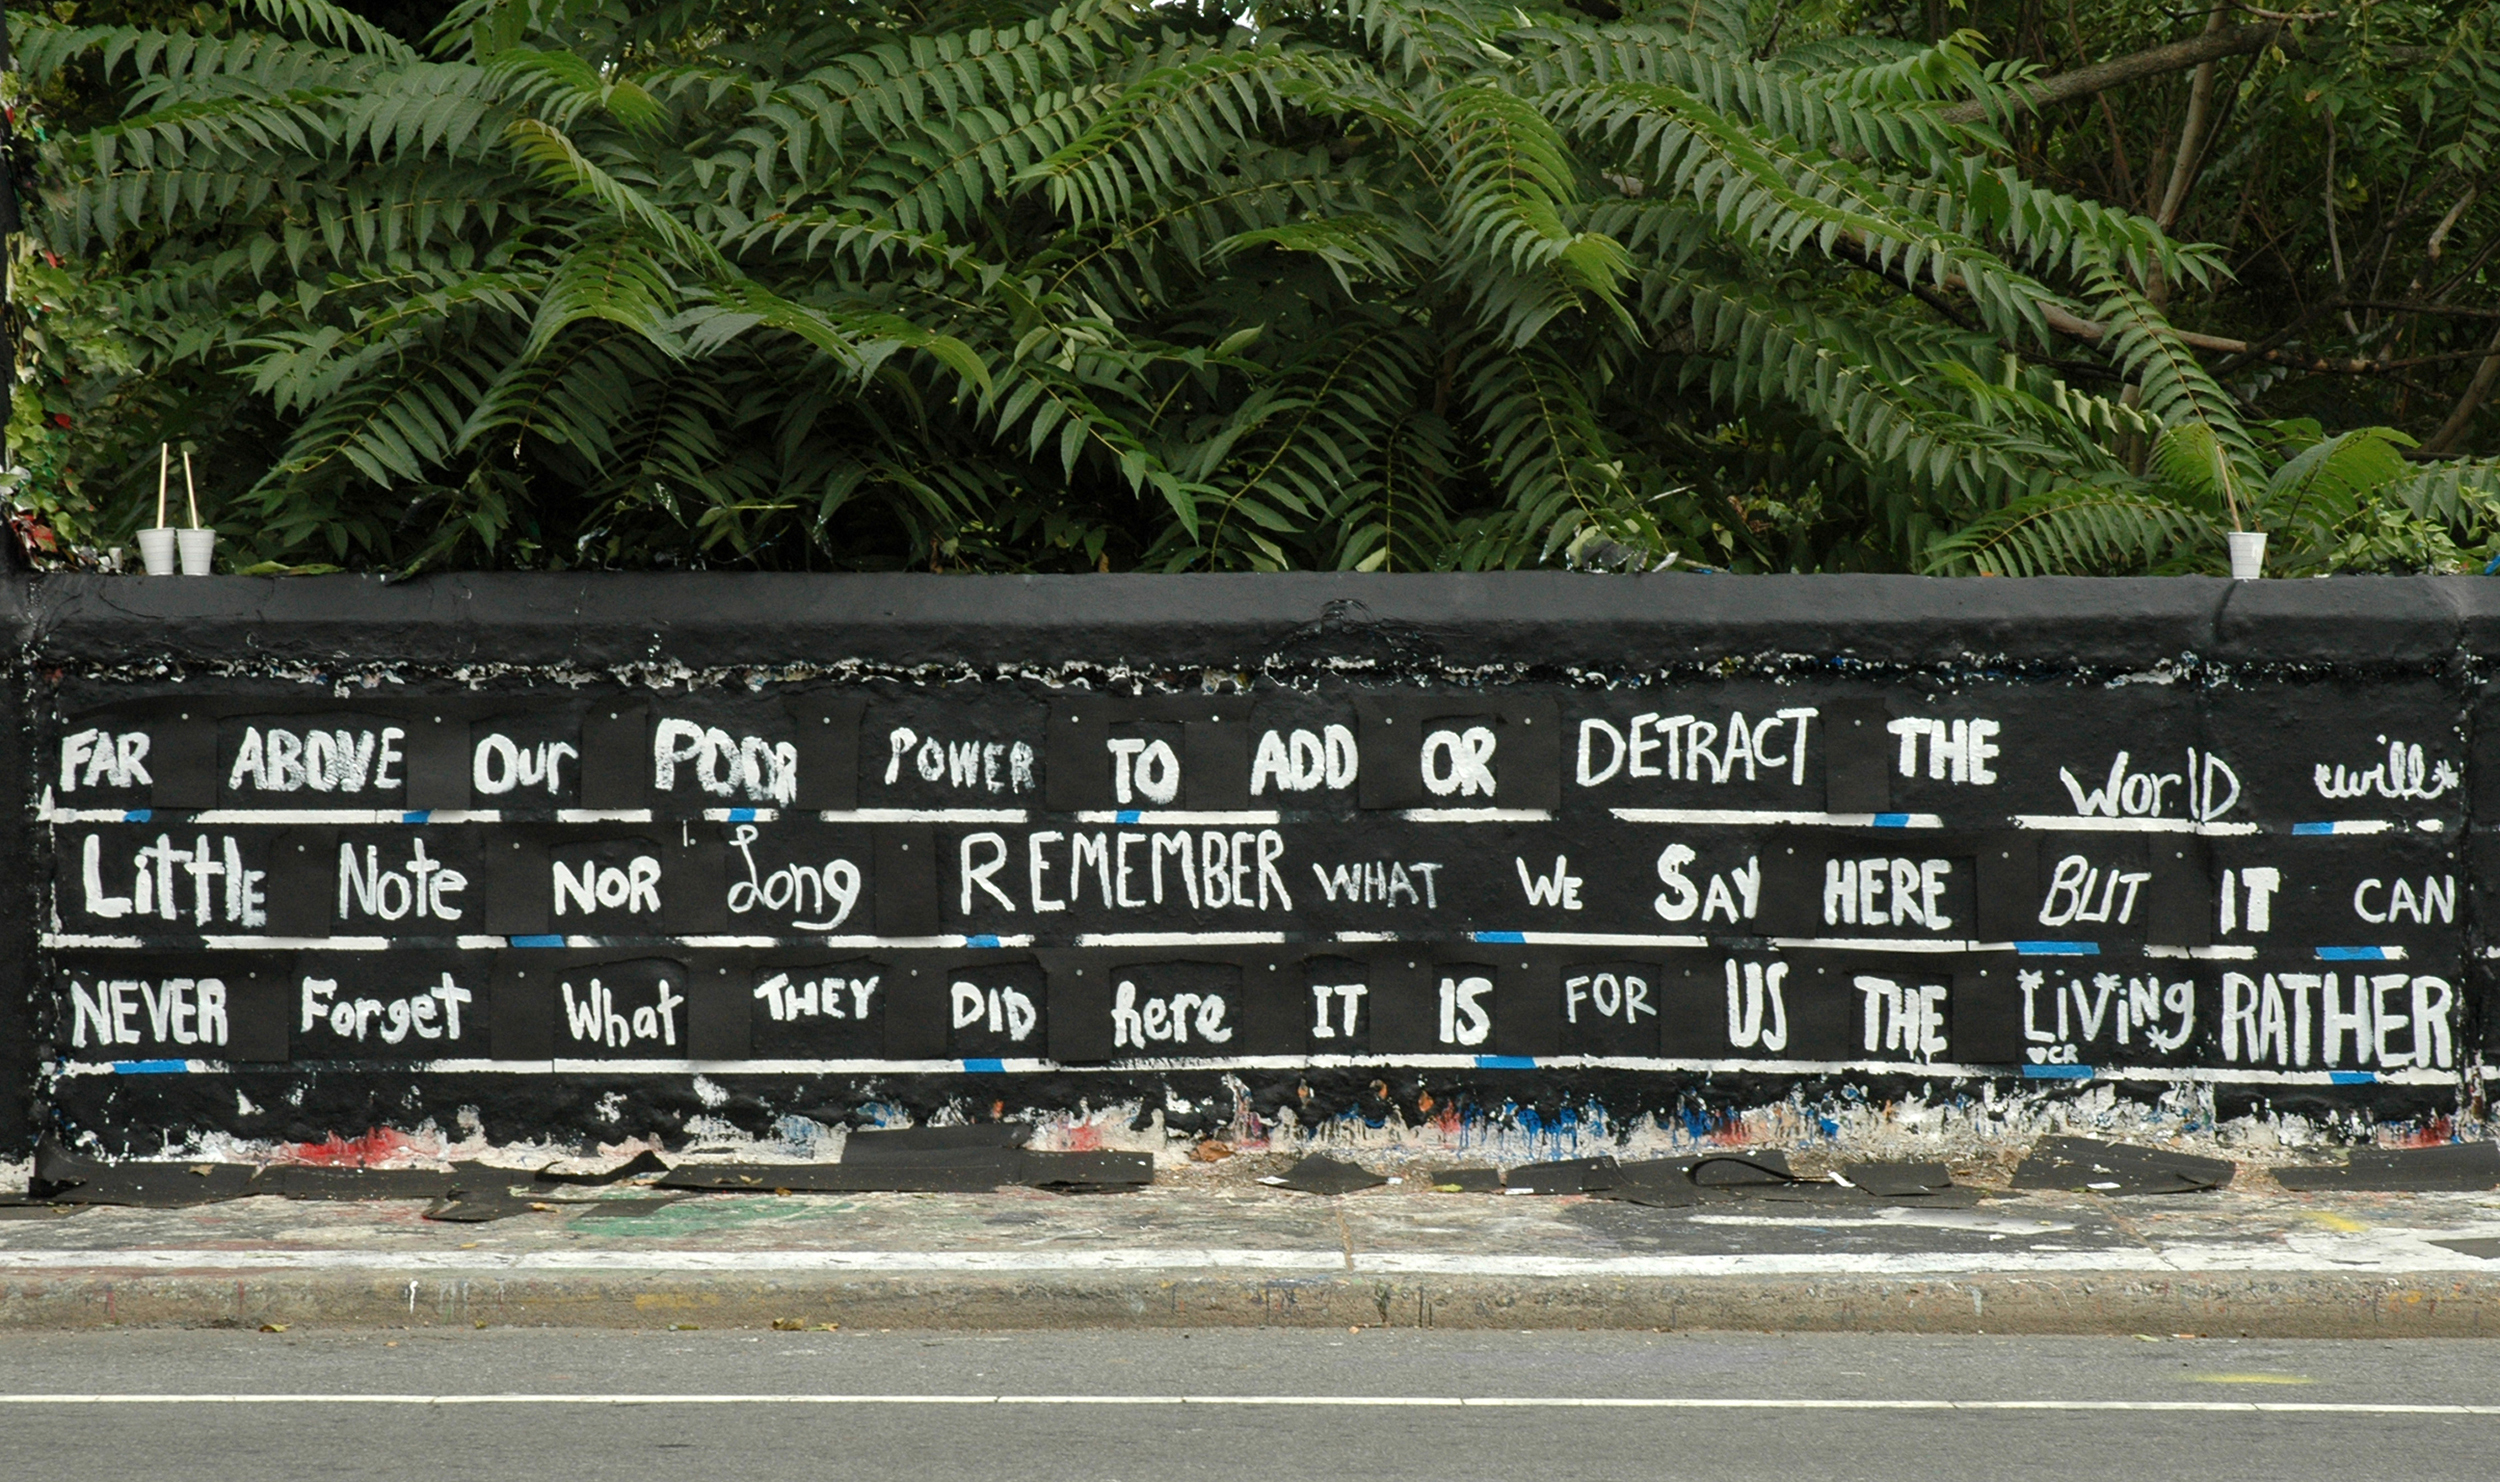 FAR ABOVE Our POOR POWER TO ADD OR DETRACT THE WorlD will
LittlE Note NOR Long REMEMBER WHAT WE SAY HERE BUT IT CAN
NEVER Forget What THEY DID here IT IS FOR US THE LiViNg RATHER
♥CR